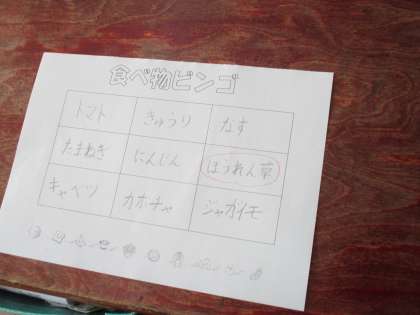 食べ物ビンゴ
トマト きゅうり なす
たまねぎ にんじん ほうれん草
キャベツ カボチャ ジャガイモ